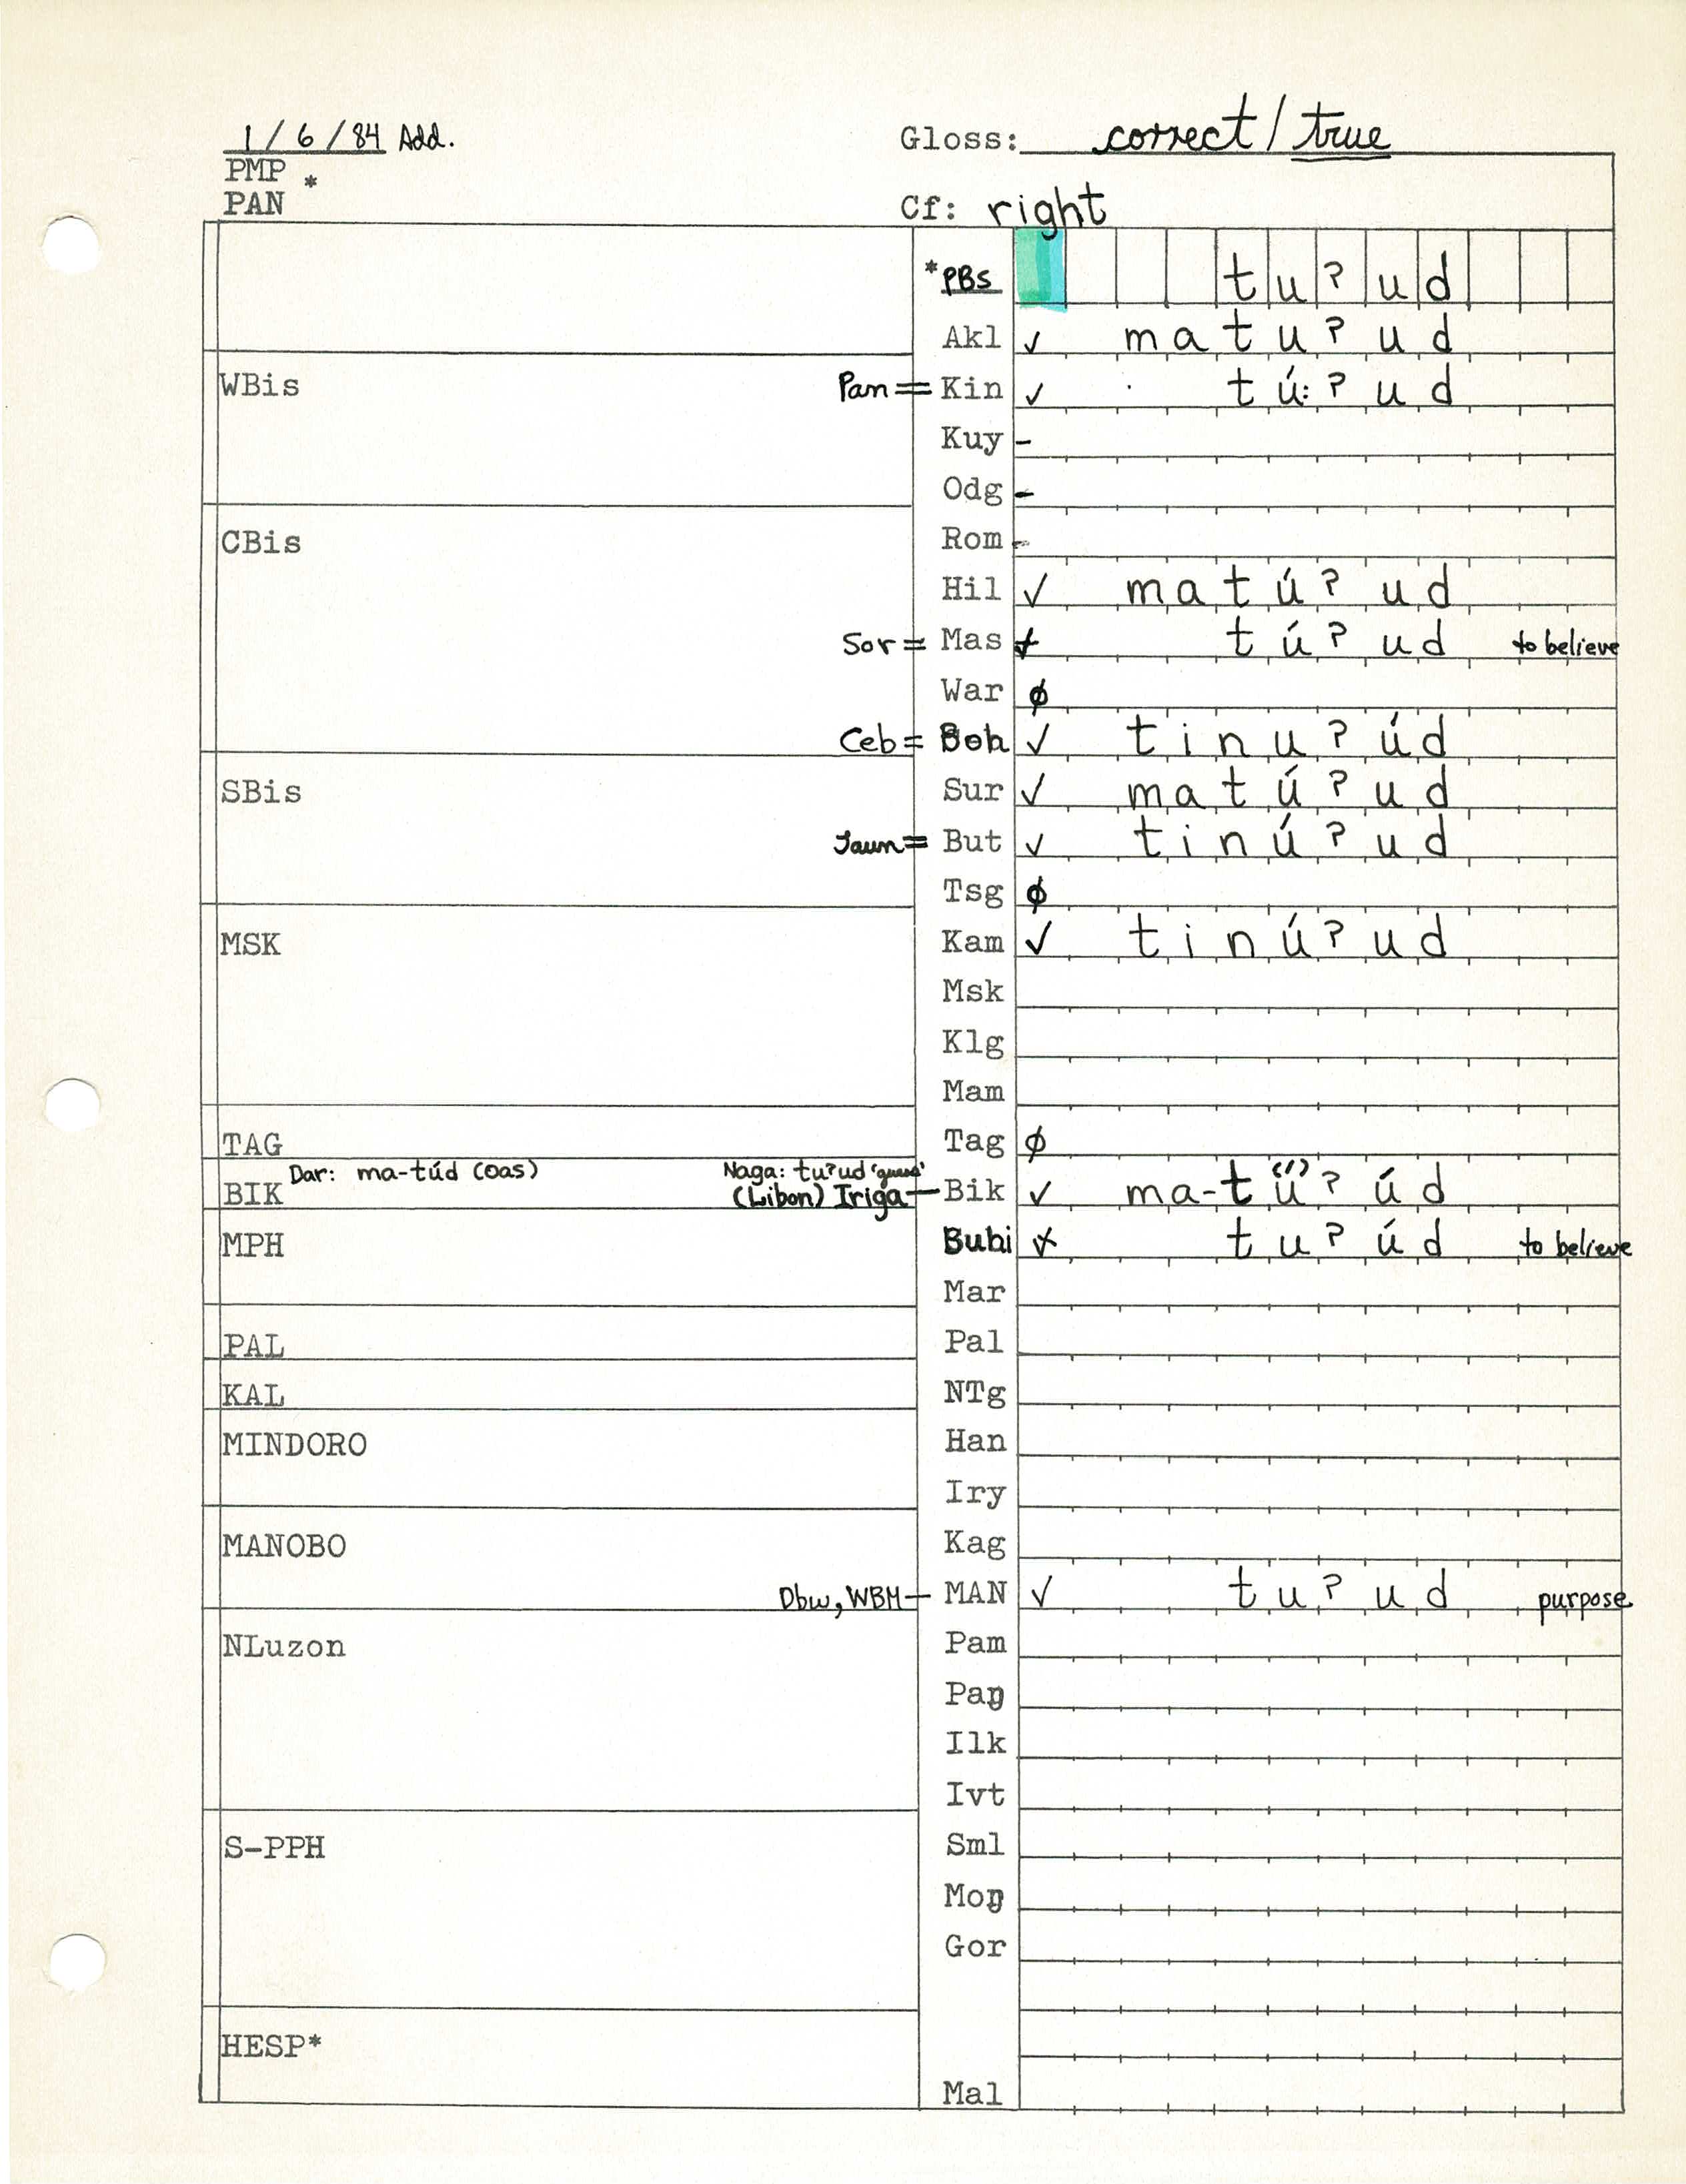 1/6/84 Add.
Gloss: correct/true
PMP
PAN *
Cf: right
*PBs tuʔud
Akl ✓ matuʔud
WBis Pan = Kin ✓ tú:ʔud
Kuy -
Odg -
CBis Rom -
Hil ✓ matúʔud
Sor = Mas túʔud to believe
War ∅
Ceb = Boh ✓ tinuʔúd
SBis Sur ✓ matúʔud
Jaun = But ✓ tinúʔud
Tsg ∅
MSK Kam ✓ tinúʔud
Msk
Klg
Mam
TAG Tag ∅
Dar: ma-túd (Oas) Naga: tuʔud
BIK (Libon) Iriga — Bik ✓ ma-tü(´)ʔúd
MPH Buhi x tuʔúd to believe
Mar
PAL Pal
KAL NTg
MINDORO Han
Iry
MANOBO Kag
Dbw, WBM — MAN ✓ tuʔud purpose
NLuzon Pam
Paŋ
Ilk
Ivt
S-PPH Sml
Moŋ
Gor
HESP*
Mal